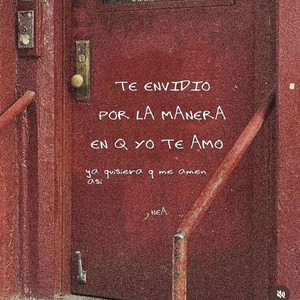 TE ENVIDIO
POR LA MANERA
EN Q YO TE AMO
ya quisiera q me amen
asi
, NEA